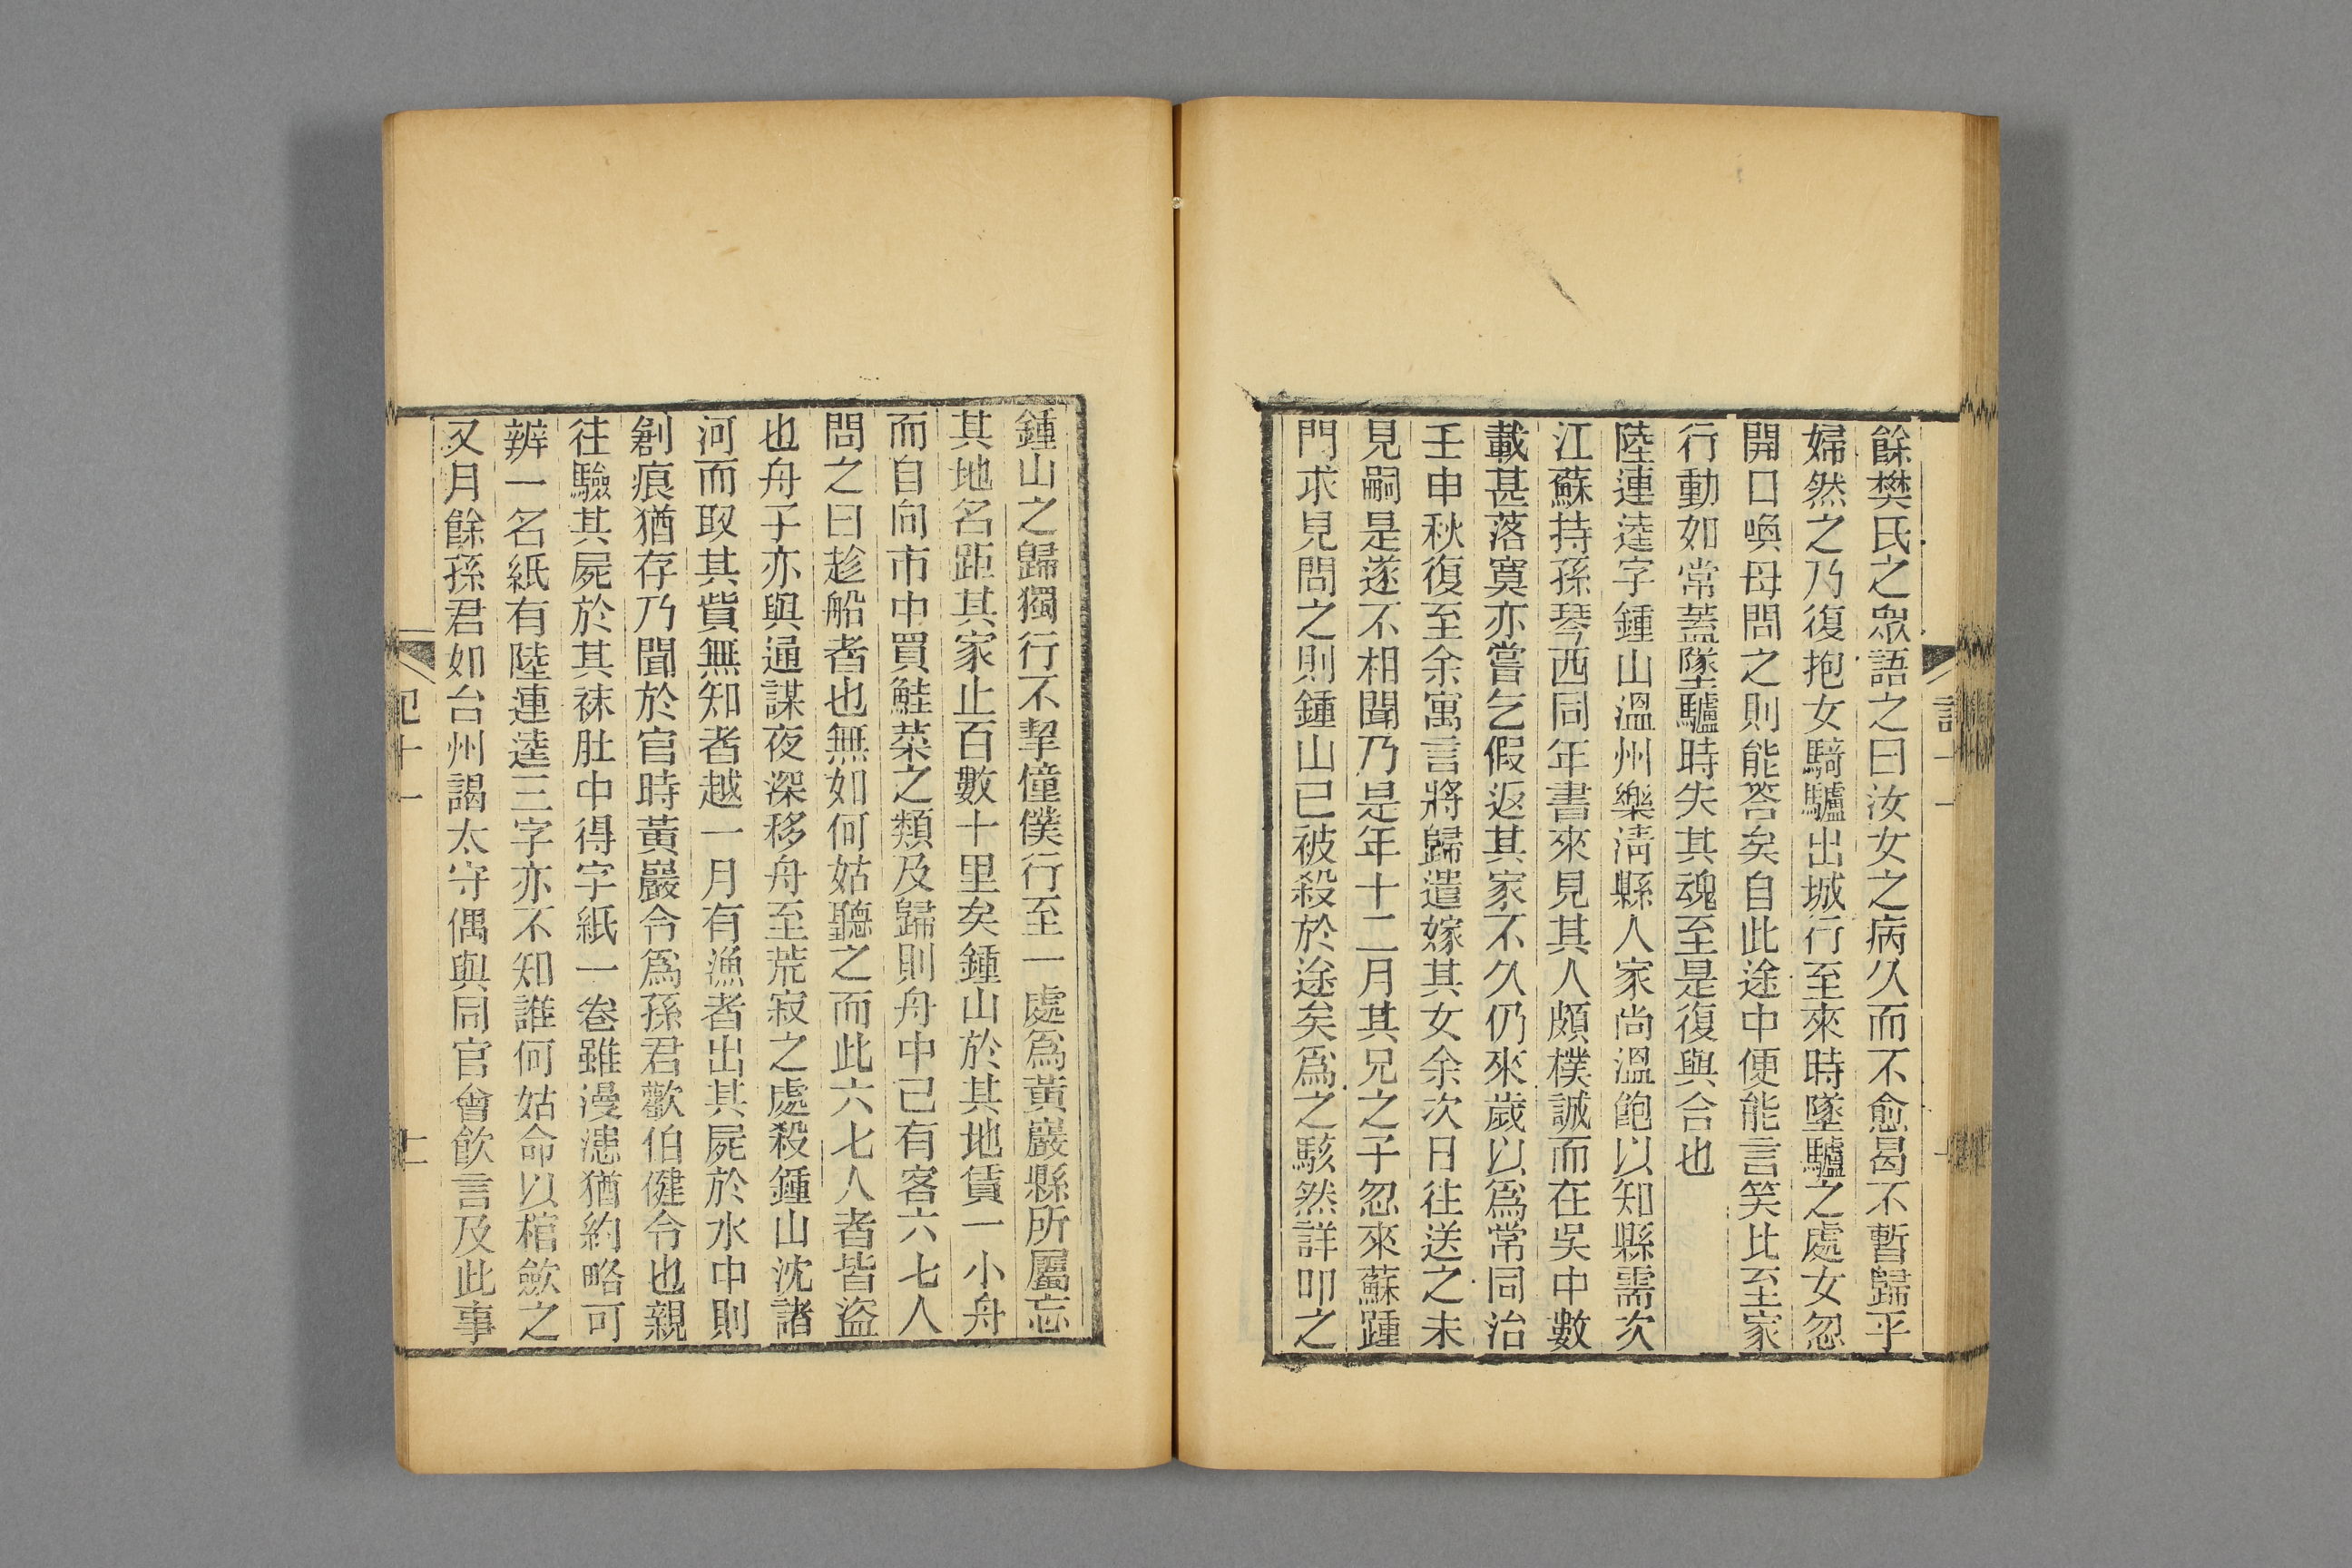 餘樊氏之衆語之曰汝女之病久而不愈曷不暫歸乎
婦然之乃復抱女騎驢出城行至來時墜驢之處女忽
開口喚母問之則能答矣自此途中便能言笑比至家
行動如常蓋墜驢時失其魂至是復與合也
陸連逵字鍾山溫州樂淸縣人家尚溫飽以知縣需次
江蘇持孫琴西同年書來見其人頗樸誠而在吳中數
載甚落寞亦嘗乞假返其家不久仍來歲以爲常同治
壬申秋復至余寓言將歸遣嫁其女余次日往送之未
見嗣是遂不相聞乃是年十二月其兄之子忽來蘇踵
門求見問之則鍾山已被殺於途矣爲之駭然詳叩之
鍾山之歸獨行不挈僮僕行至一處爲黃巖縣所屬忘
其地名距其家止百數十里矣鍾山於其地賃一小舟
而自向市中買鮭菜之類及歸則舟中已有客六七人
問之曰趁船者也無如何姑聽之而此六七人者皆盜
也舟子亦與通謀夜深移舟至荒寂之處殺鍾山沈諸
河而取其貲無知者越一月有漁者出其屍於水中則
創痕猶存乃聞於官時黃巖令爲孫君歡伯健令也親
往驗其屍於其袜肚中得字紙一卷雖漫漶猶約略可
辨一名紙有陸連逵三字亦不知誰何姑命以棺斂之
又月餘孫君如台州謁太守偶與同官會飲言及此事